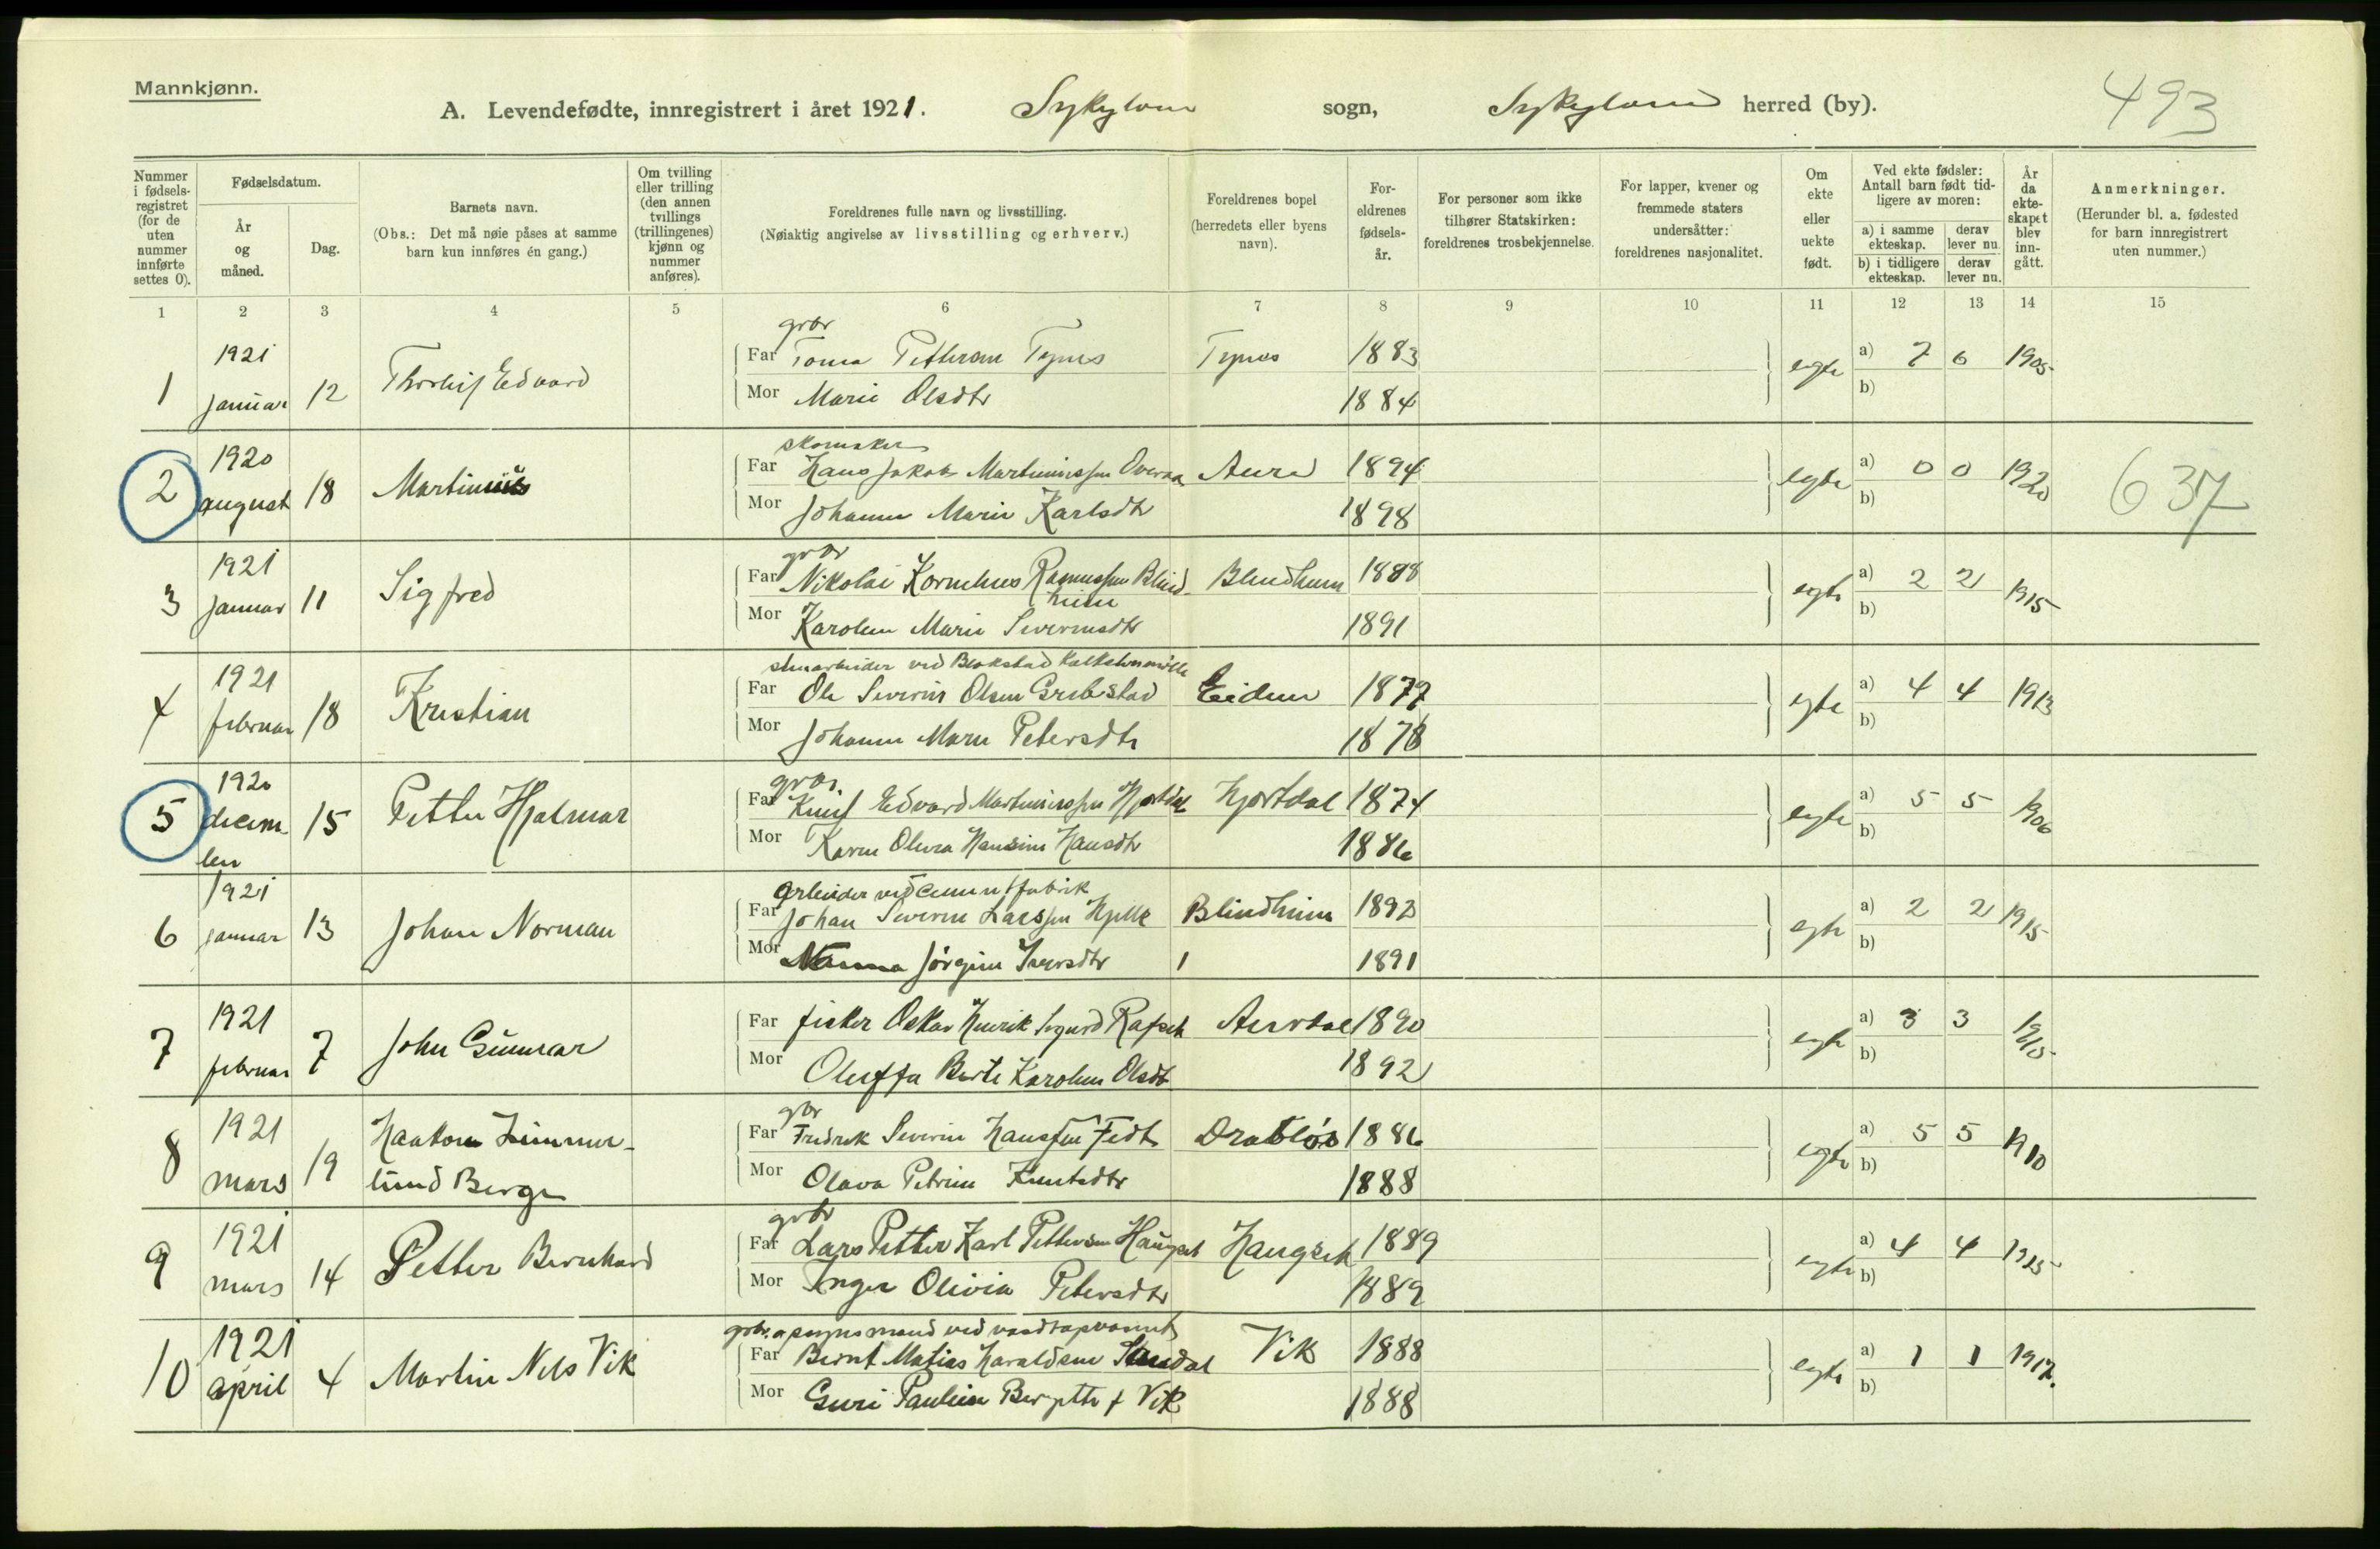 Mannkjønn.
A. Levendefødte, innregistrert i året 1921. Sykylven sogn, Sykylven herred (by). 493
Nummer i fødsels-registret (for de uten nummer innførte settes 0).
Fødselsdatum.
År og måned.
Dag.
Barnets navn.
(Obs.: Det må nøie påses at samme barn kun innføres én gang.)
Om tvilling eller trilling (den annen tvillings (trillingenes) kjønn og nummer anføres).
Foreldrenes fulle navn og livsstilling.
(Nøiaktig angivelse av livsstilling og erhverv.)
Foreldrenes bopel (herredets eller byens navn).
For-eldrenes fødsels-år.
For personer som ikke tilhører Statskirken: foreldrenes trosbekjennelse.
For lapper, kvener og fremmede staters undersåtter: foreldrenes nasjonalitet.
Om ekte eller uekte født.
Ved ekte fødsler: Antall barn født tid-ligere av moren:
a) i samme ekteskap. derav lever nu.
b) i tidligere ekteskap. derav lever nu.
År da ekte-skapet blev inn-gått.
Anmerkninger.
(Herunder bl. a. fødested for barn innregistrert uten nummer.)
1 2 3 4 5 6 7 8 9 10 11 12 13 14 15
grbr
1 1921 januar 12 Thorleif Edvard Far Petterson Tynes Tynes 1883 egte a) 7 6 1905
Mor Marie Olsdtr 1884 b)
skomaker
2 1920 august 18 Martinius Far Hans Jakob Martinussen Overaa Aure 1894 egte a) 0 0 1920 637
Mor Johanne Marie Karlsdtr 1898 b)
grbr
3 1921 januar 11 Sigfred Far Nikolai Kornelius Rasmussen Blind- Blindheim 1888 egte a) 2 2 1915
heim
Mor Karoline Marie Severinsdtr 1891 b)
stenarbeider ved Blakstad Kalkstensmølle
4 1921 februar 18 Kristian Far Ole Severin Olsen Grebstad Eidem 1877 egte a) 4 4 1913
Mor Johanne Marie Petersdtr 1878 b)
grbr
5 1920 decem ber 15 Petter Hjalmar Far Knut Edvard Martinussen Hjortdal Hjortdal 1874 egte a) 5 5 1906
Mor Karen Olivra Hansine Hansdtr 1886 b)
arbeider ved cementfabrik
6 1921 januar 13 Johan Norman Far Johan Severin Larssen Hjelle Blindheim 1893 egte a) 2 2 1915
Mor Nanna Jørgine Iversdtr 1891 b)
7 1921 februar 7 John Gunnar Far fisker Oskar Henrik Sigurd Ramset Aurdal 1890 egte a) 3 3 1915
Mor Oluffa Berte Karoline Olsdtr 1892 b)
gbr
8 1921 mars 19 Haakon Zimmer- Far Fredrik Severin Hanssen Fedt Drabløs 1886 egte a) 5 5 1910
lund Berge
Mor Olava Petrine Knutsdtr 1888 b)
grbr
9 1921 mars 14 Petter Bernhard Far Lars Petter Karl Pettersen Haugset Haugset 1889 egte a) 4 4
Mor Inger Olivia Petersdtr 1889 b)
grbr. opsynsmand ved
10 1921 april 4 Martin Nils Vik Far Bernt Matias Haraldsen Vik 1888 egte a) 1 1 1917.
Mor Guri Pauline f Vik 1888 b)